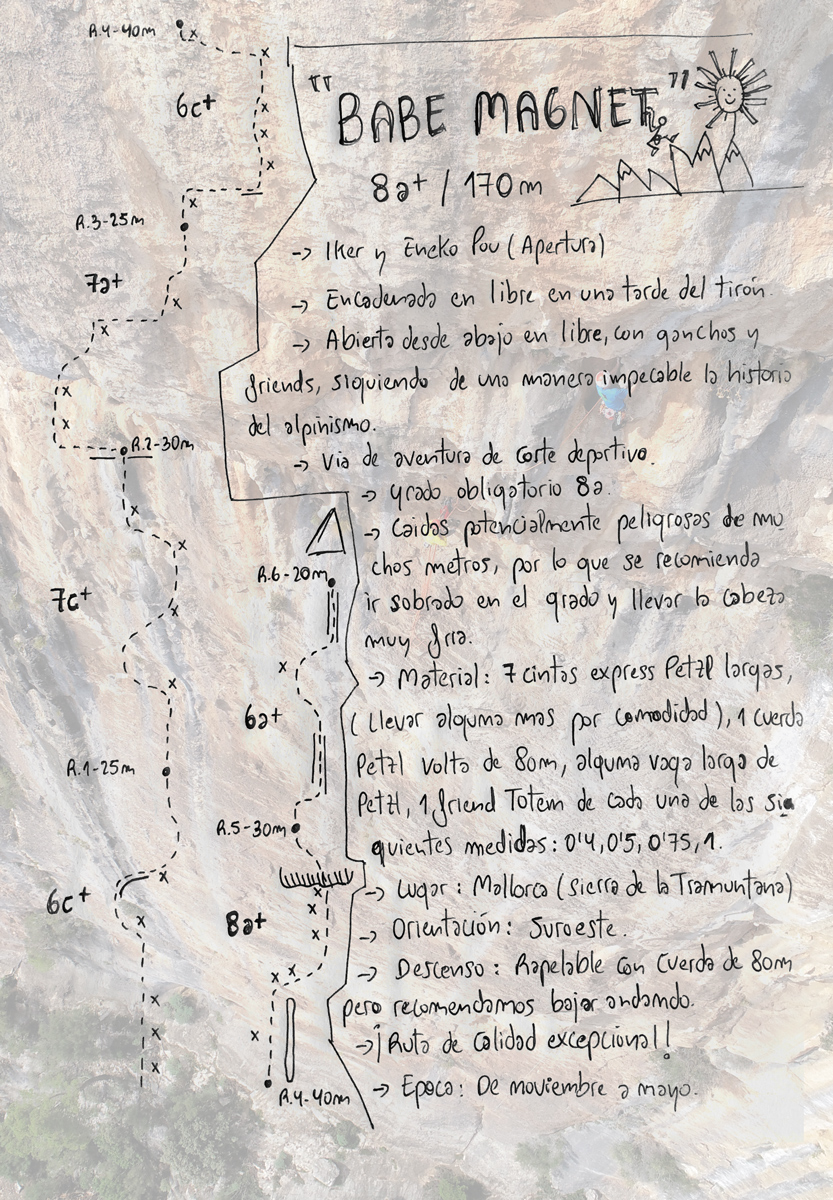 R.4-40m
6c+
R.3-25m
7a+
R.2-30m
7c+
R.1-25m
6c+
R.6-20m
6a+
R.5-30m
8a+
R.4-40m
"BABE MAGNET"
8a+ / 170m
-> Iker y Eneko Pou (Apertura)
-> Encadenada en libre en una tarde del tirón.
-> Abierta desde abajo en libre, con ganchos y
friends, siguiendo de una manera impecable la historia
del alpinismo.
-> Via de aventura de corte deportivo.
-> grado obligatorio 8a.
-> Caidas potencialmente peligrosas de mu
chos metros, por lo que se recomienda
ir sobrado en el grado y llevar la cabeza
muy fria.
-> Material: 7 cintas express Petzl largas,
(llevar alguma mas por comodidad), 1 cuerda
Petzl volta de 80m, alguma vaga larga de
Petzl, 1 friend Totem de cada una de las si
guientes medidas: 0'4, 0'5, 0'75, 1.
-> Lugar: Mallorca (Sierra de la Tramuntana)
-> Orientación: Suroeste.
-> Descenso: Rapelable con cuerda de 80m
pero recomendamos bajar andando.
-> ¡Ruta de calidad excepcional!
-> Epoca: De noviembre a mayo.